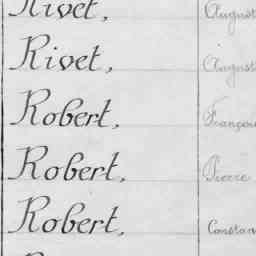 Rivet, August
Rivet, August
Robert, François
Robert, Pierre
Robert, Constan